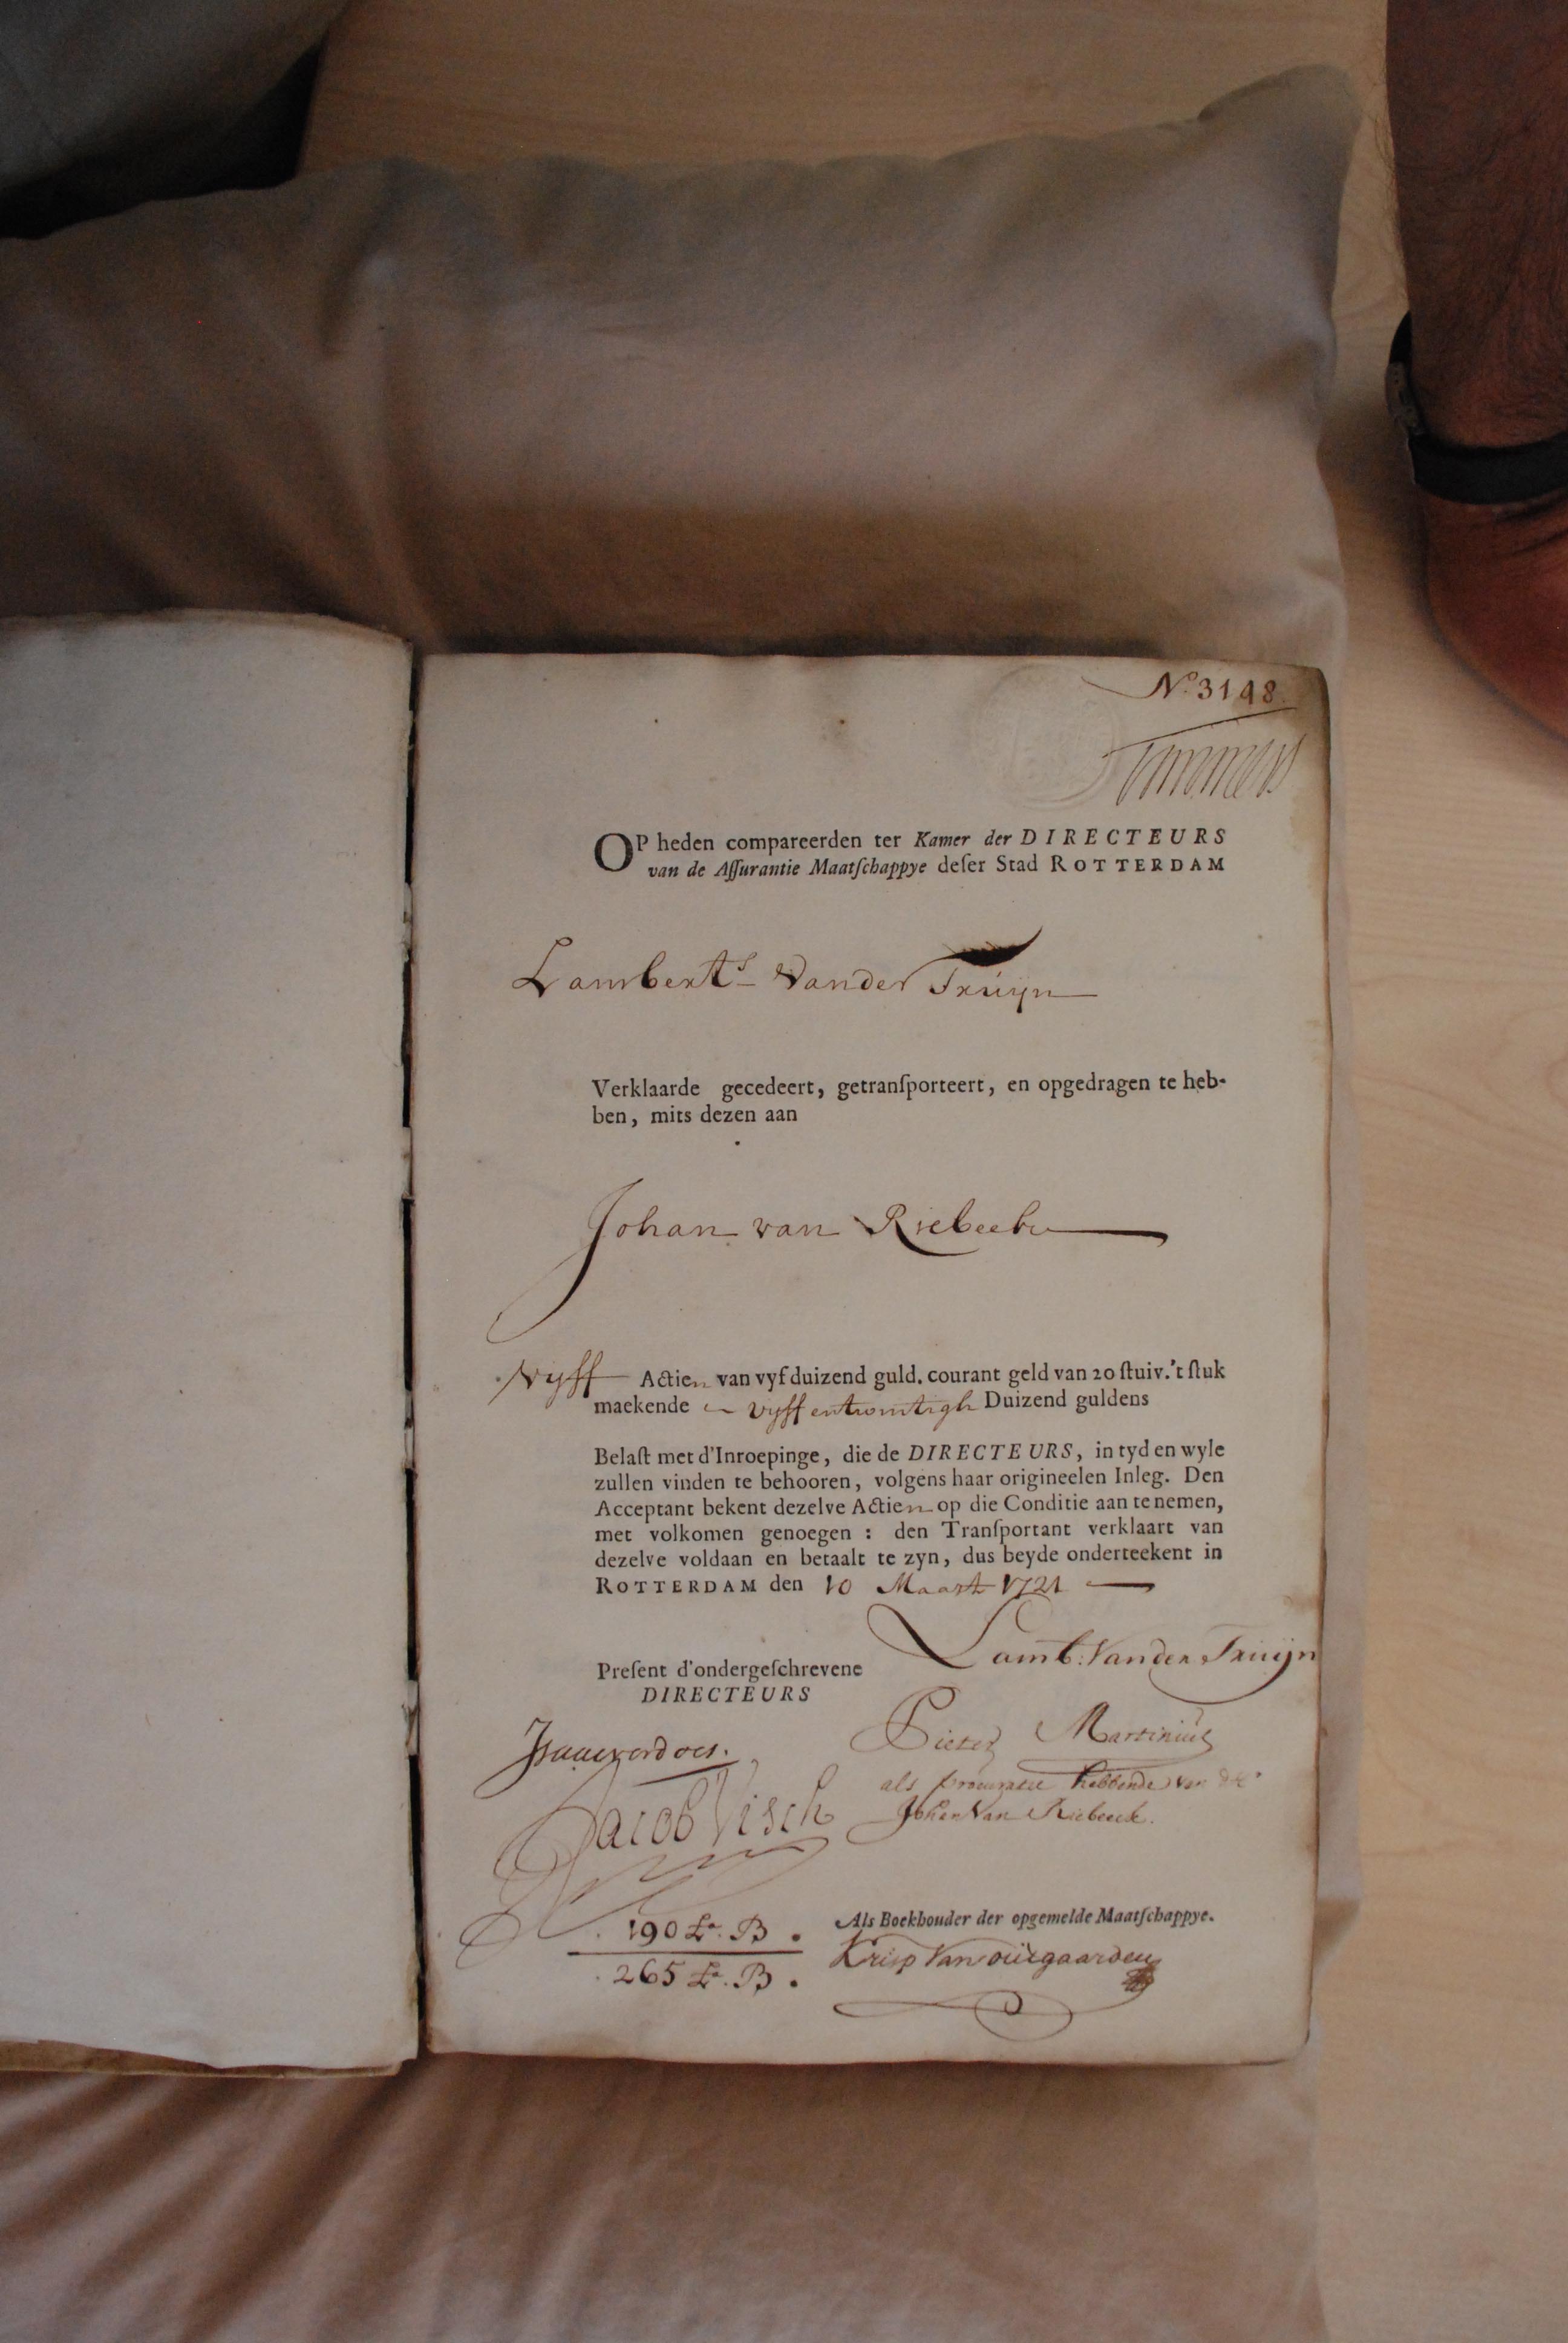 No. 3198.
Timmers
OP heden compareerden ter Kamer der DIRECTEURS
van de Aſſurantie Maatſchappye deſer Stad ROTTERDAM
Lambert.s Vander Truijn
Verklaarde gecedeert, getranſporteert, en opgedragen te heb-
ben, mits dezen aan
Johan van Riebeeke
Vyff Actien van vyf duizend guld. courant geld van 20 ſtuiv. 't ſtuk
maekende vyff entwintigh Duizend guldens
Belaſt met d'Inroepinge, die de DIRECTEURS, in tyd en wyle
zullen vinden te behooren, volgens haar origineelen Inleg. Den
Acceptant bekent dezelve Actien op die Conditie aan te nemen,
met volkomen genoegen : den Tranſportant verklaart van
dezelve voldaan en betaalt te zyn, dus beyde onderteekent in
ROTTERDAM den 10 Maart 1721
Lamb: Vander Truijn
Preſent d'ondergeſchrevene
DIRECTEURS
Pieter Martinius
als procuratie hebbende van
Johan Van Riebeeck.
Jacob Visch
190 La. B.
265 La. B.
Als Boekhouder der opgemelde Maatſchappye.
Krisp Van